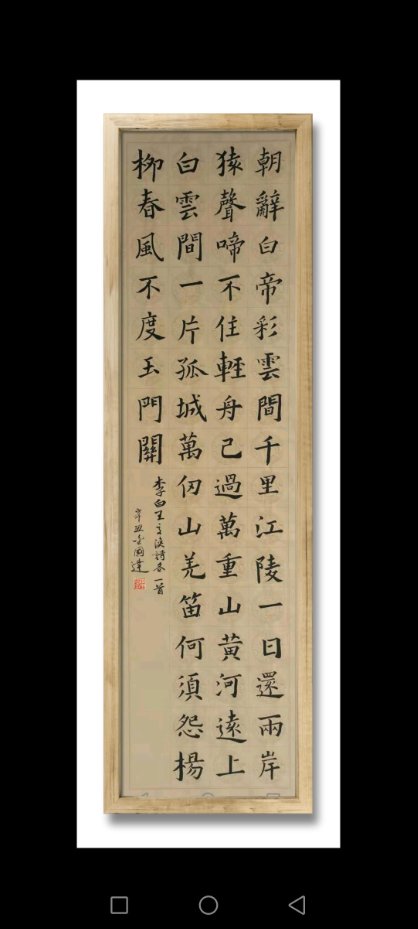 朝辭白帝彩雲間千里江陵一日還兩岸
猿聲啼不住輕舟已過萬重山黃河遠上
白雲間一片孤城萬仞山羌笛何須怨楊
柳春風不度玉門關
李白王之渙詩各一首
辛丑國達